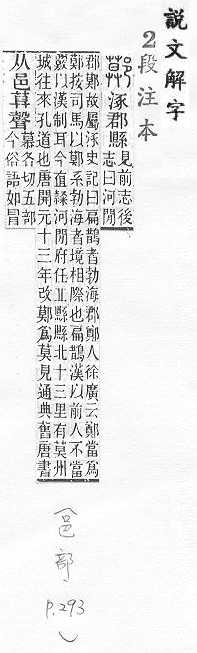 說文解字
2段注本
鄚 涿郡縣
見前志後
志曰河閒
郡鄚故屬涿史記曰扁鵲者勃海郡鄭人徐廣云鄭當爲
鄚按司馬以鄭系勃海者境相際也扁鵲漢以前人不當
嚴以漢制耳今直隸河閒府任丠縣縣北十三里有莫州
城往來孔道也唐開元十三年改鄚爲莫見通典舊唐書
从邑𦱤聲
慕各切五部
今俗語如冒
(邑部 P.293)